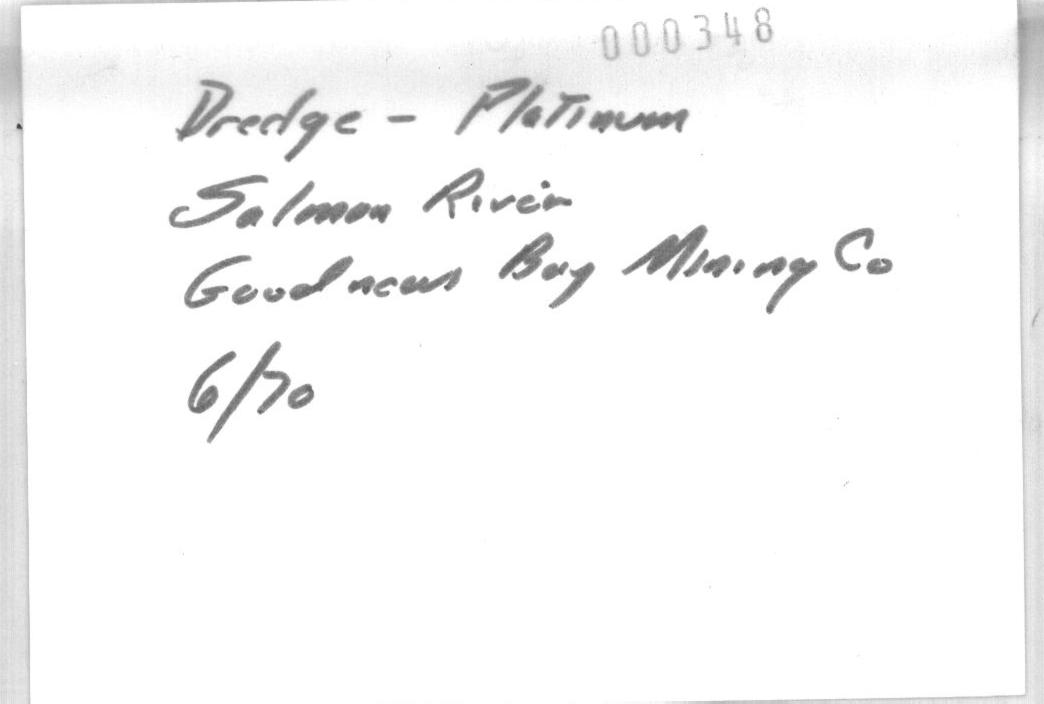 000348
Dredge - Platinum
Salmon River
Goodnews Bay Mining Co
6/70